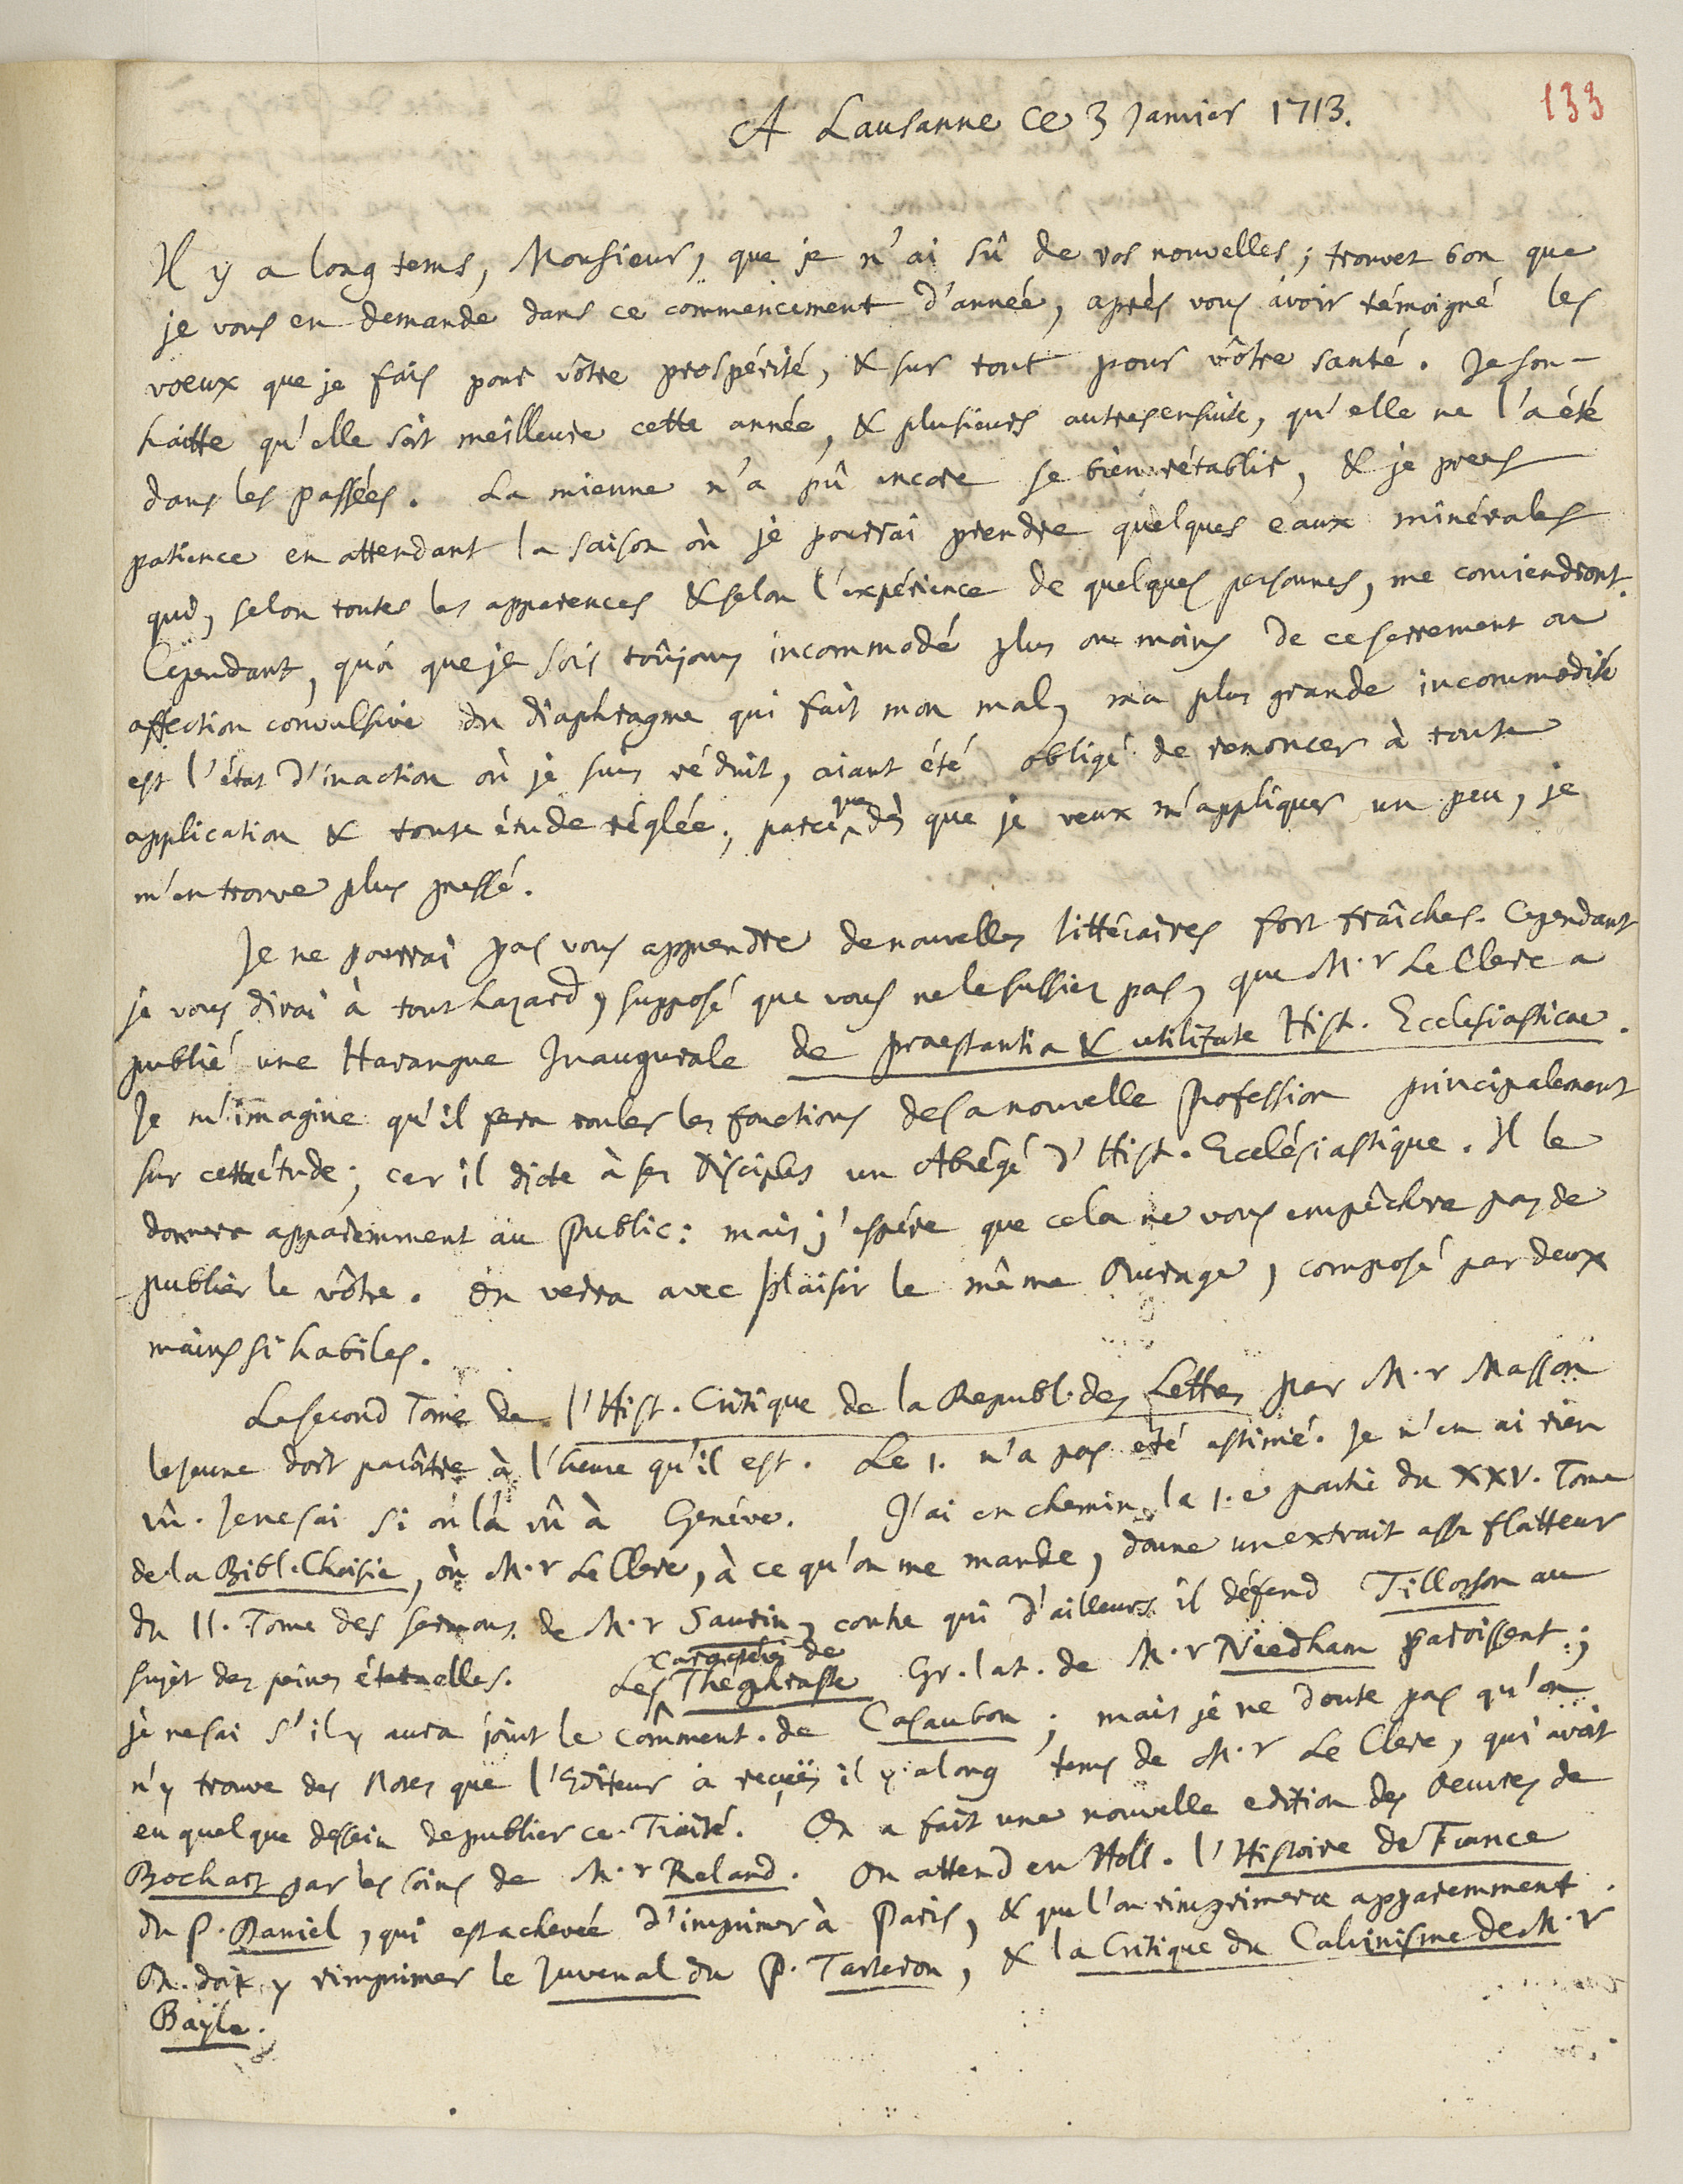 133
A Lausanne ce 3 Janvier 1713.
Il y a long tems, Monsieur, que je n'ai sû de vos nouvelles; trouvez bon que
je vous en demande dans ce commencement d'année, après vous avoir témoigné les
voeux que je fais pour vôtre prospérité, & sur tout pour vôtre santé. Je sou-
haitte qu'elle soit meilleure cette année, & plusieurs autres ensuite, qu'elle ne l'a été
dans les passées. La mienne n'a pû encore se bien rétablir, & je prens
patience en attendant la saison où je pourrai prendre quelques eaux minérales
qui, selon toutes les apparences & selon l'expérience de quelques personnes, me conviendront.
Cependant, quoi que je sois toûjours incommodé plus ou moins de ce serrement ou
affection convulsive du diaphragme qui fait mon mal, ma plus grande incommodité
est l'état d'inaction où je suis réduit, aiant été obligé de renoncer à toute
application & toute étude réglée, parce que dès que je veux m'appliquer un peu, je
m'en trouve plus pressé.
Je ne pourrai pas vous apprendre de nouvelles littéraires fort fraîches. Cependant
je vous dirai à tout hazard, supposé que vous ne le sussiez pas, que M.r Le Clerc a
publié une Harangue Inaugurale de praestantia & utilitate Hist. Ecclesiasticae.
Je m'imagine qu'il fera rouler les fonctions de sa nouvelle Profession principalement
sur cette étude; car il dicte à ses Disciples un Abrégé d'Hist. Ecclésiastique. Il le
donnera apparemment au Public: mais j'espére que cela ne vous empêchera pas de
publier le vôtre. On verra avec plaisir le même Ouvrage, composé par deux
mains si habiles.
Le second Tome de l'Hist. Critique de la Republ. des Lettres par M.r Masson
le jeune doit paroître à l'heure qu'il est. Le 1. n'a pas été estimé. Je n'en ai rien
vû. Je ne sai si on l'a vû à Genéve. J'ai en chemin la 1.e partie du XXV. Tome
de la Bibl. Choisie, où M.r Le Clerc, à ce qu'on me mande, donne un extrait assez flatteur
du II. Tome des sermons de M.r Saurin, contre qui d'ailleurs il défend Tillotson au
sujet des peines éternelles. Les Caractéres de Théophraste Gr. lat. de M.r Needham paroissent;
je ne sai s'il y aura joint le Comment. de Casaubon; mais je ne doute pas qu'on
n'y trouve des Notes que l'Editeur a recuës il y a long tems de M.r Le Clerc, qui avoit
eu quelque dessein de publier ce Traité. On a fait une nouvelle edition des Oeuvres de
Bochart par les soins de M.r Reland. On attend en Holl. l'Histoire de France
du P. Daniel, qui est achevée d'imprimer à Paris, & que l'on rimprimera apparemment.
On doit y rimprimer le Juvenal du P. Tarteron, & la Critique du Calvinisme de M.r
Bayle.